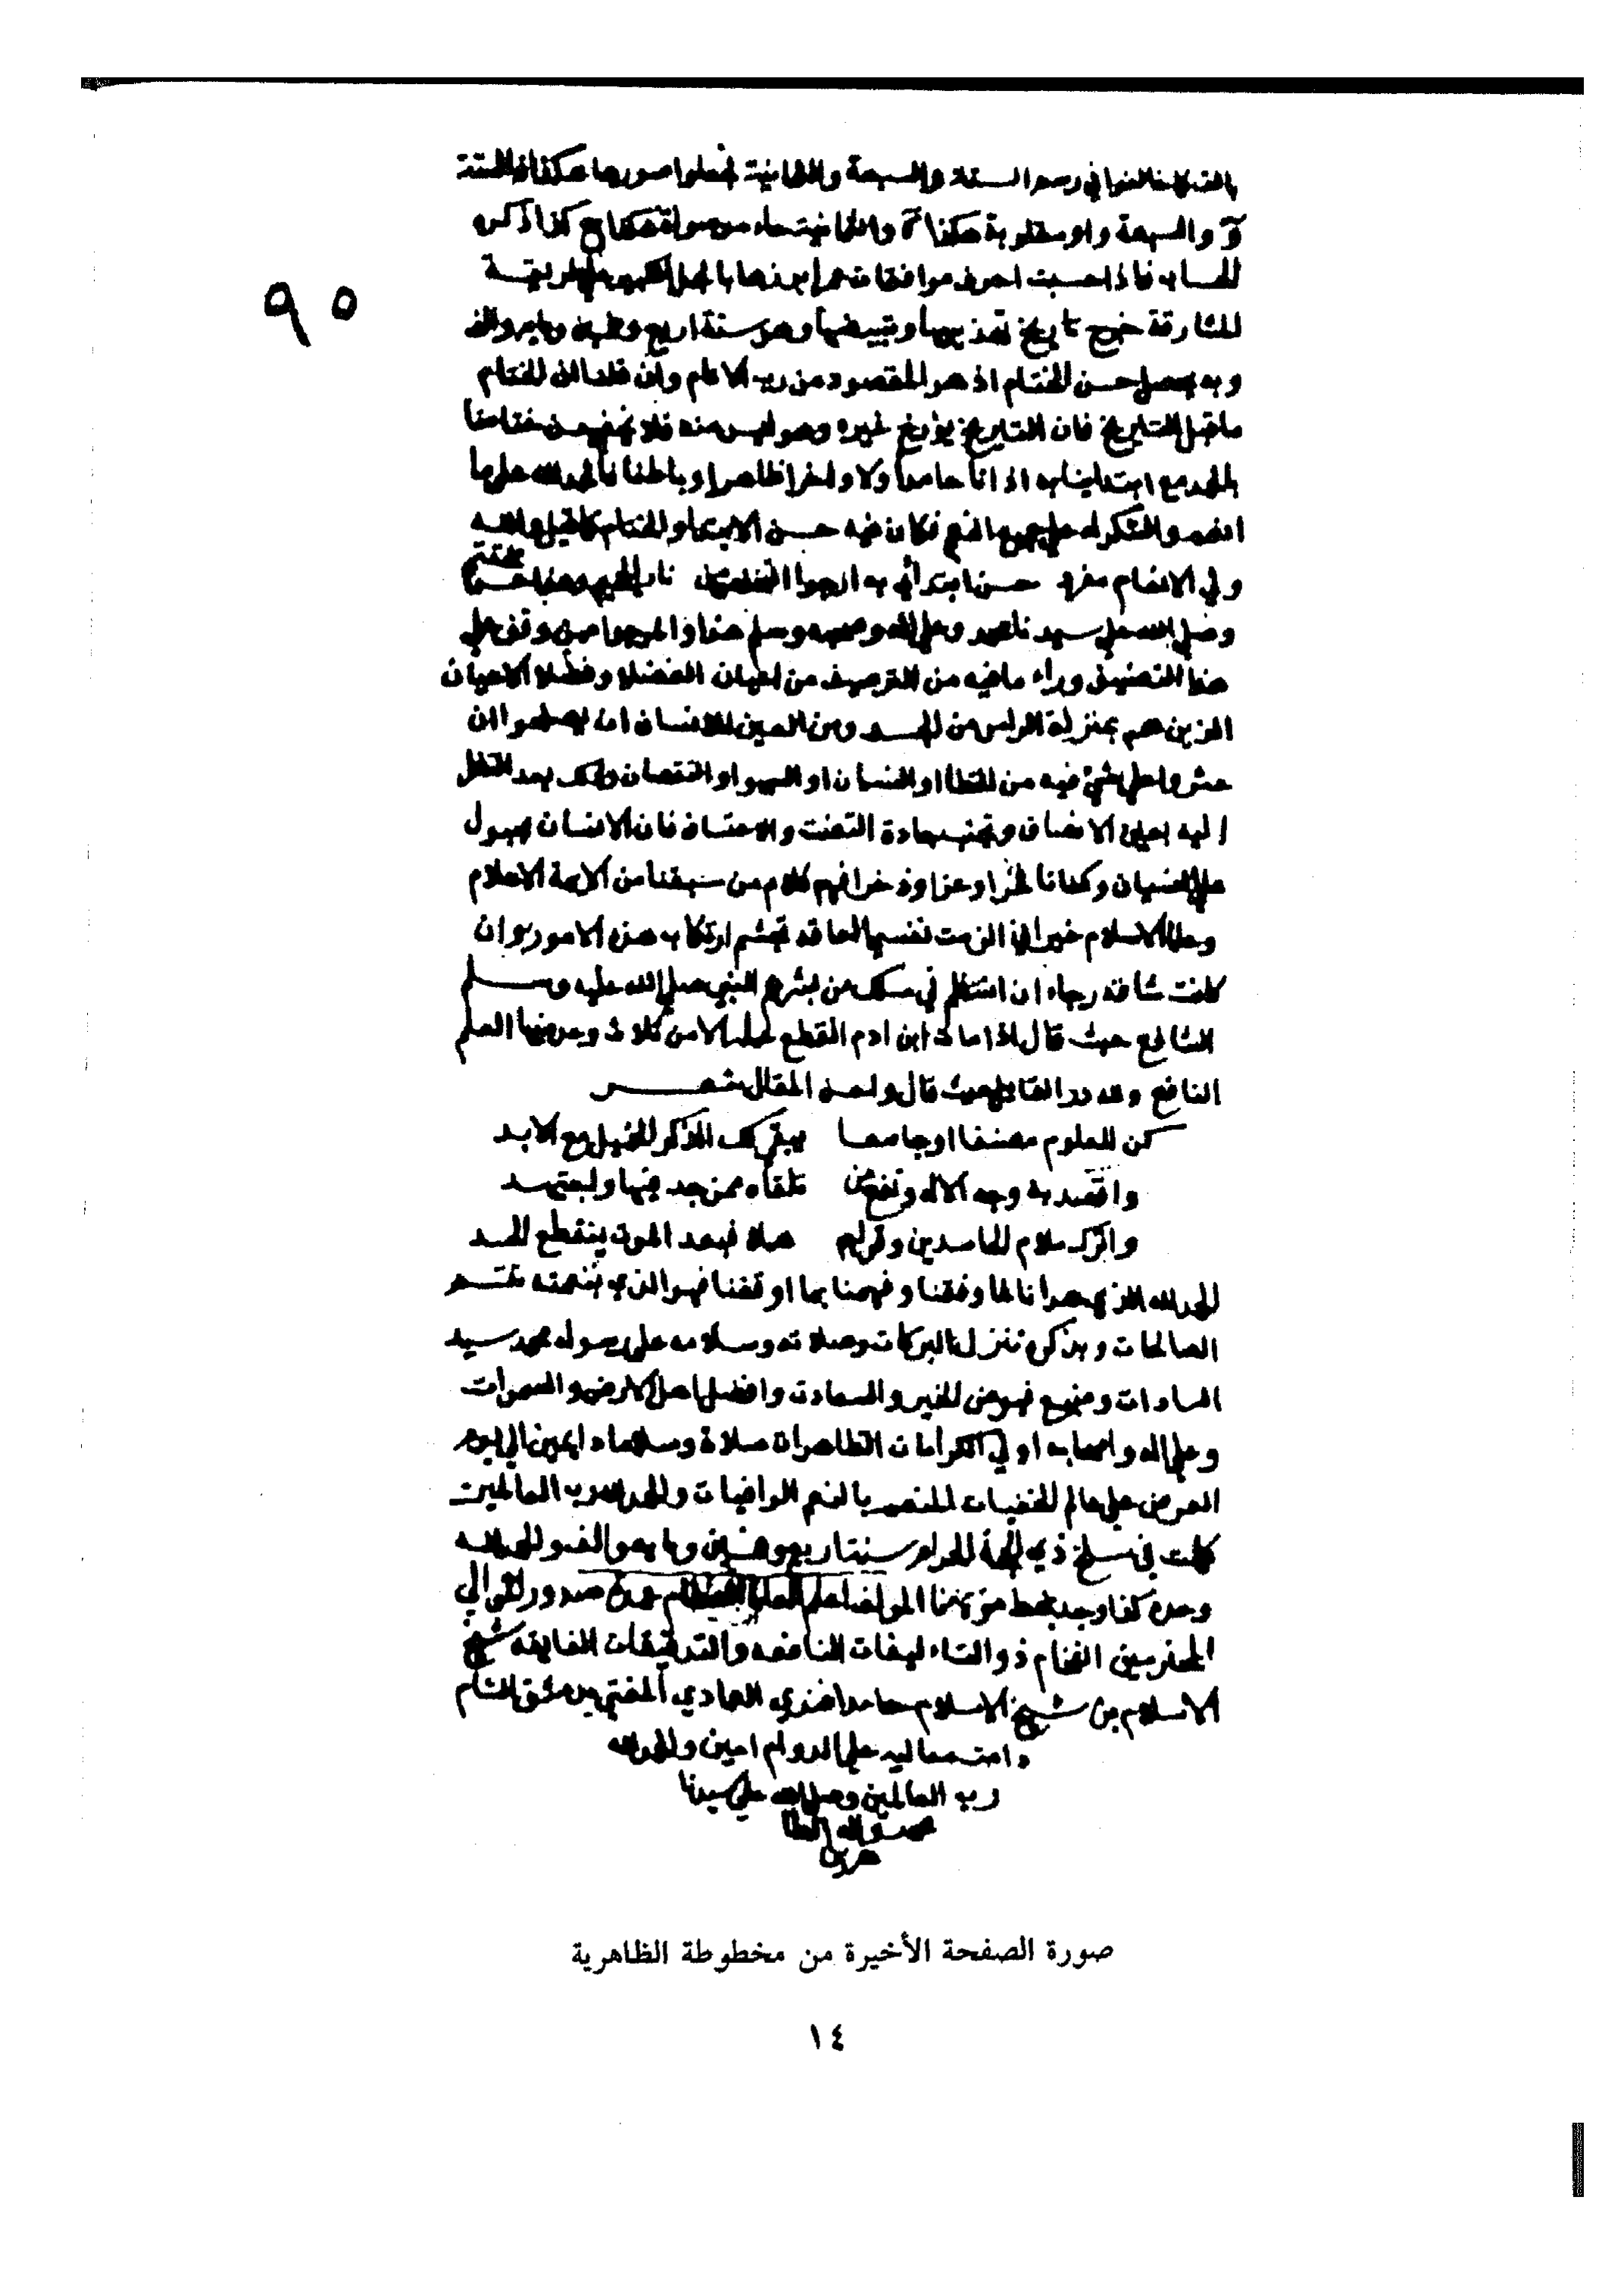 والسبعة واو مقلوبة هكذا والثمانية حاء موصولة هكذا كذا ذكره
الحساب فاذا حسبت احرف موافقات عمر
المشارقة خرج تاريخ تهذيبها وتبييضها وهو سنة اربع وماية والف
وبه يحصل حسن الختام اذ هو المقصود من رب الانام وان قلنا ان الختام
ما قبل التاريخ فان التاريخ يؤرخ غيره وهو ليس منه فلا يخفى حسن ختامنا
بالحمد مع ابتداينا به اذ انا حامد اولا واخرا ظاهرا وباطنا فالحمد لله على ما
انعم والشكر له على جميع النعم فكان فيه حسن الابتدا والختام كما قيل
وفي الانغام مفرد حسن ابتدائي به ارجوا التخلص
وصلى الله على سيدنا محمد وعلى اله وصحبه وسلم هذا والمرجوا ممن وقف على
هذا التصنيف وراء ما فيه من الترصيف من اعيان الفضلا وفضلا الاعيان
الذين هم بمنزلة الراس من الجسد ومن العين للانسان ان يصلحوا ان
عثروا على شيء فيه من الخطا او النسيان او السهو او النقصان وذلك بعد النظر
اليه بعين الانصاف وتجنب جادة التعنت والاعتساف فان الانسان مجبول
على النسيان وكفانا فخرا وعزا وذخرا فهم كلام من سبقنا من الايمة الاعلام
وعلما الاسلام غير اني الزمت نفسي لما قد تجشم ارتكاب هذه الامور وان
كانت شاقة رجاء ان انتظم في سلك من بشرهم النبي صلى الله عليه وسلم
الشافع حيث قال اذا مات ابن ادم انقطع عمله الا من ثلاث وعد منها العلم
النافع ولله در القايل حيث قال واحسن المقال شعر
كن للعلوم مصنفا او جامعا يبقى لك الذكر الجميل مع الابد
واقصد به وجه الاله ونفع من تلقاه ممن جد فيها واجتهد
واترك ملام الحاسدين وقولهم هملا فبعد الموت ينقطع الحسد
الحمد لله الذي هدانا لما وفقنا وفهمنا بما اوقفنا فهو الذي بنعمته تتم
الصالحات وبذكره تنزل البركات وصلاته وسلامه على رسوله محمد سيد
السادات ومنبع فيوض الخير والسعادت وافضل اهل الارض والسموات
وعلى اله واصحابه اولي الكرامات الظاهرات صلاة وسلاما دايمين الى يوم
العرض على عالم الخفيات المنعم بالنعم الوافيات والحمد لله رب العالمين
كملت في سلخ ذي الحجة الحرام سنة اربع وماية والف والحمد لله
وحده كذا وجد بخط مؤلفها المولى اعلم العلما العظام صدور الموالي
المدرسين الفخام ذو التاءليفات النافعه والتدقيقات الفايقه شيخ
الاسلام بن شيخ الاسلام حامد افندي العمادي المفتي بدمشق الشام
دامت معاليه على الدوام امين والحمد لله
رب العالمين وصلى الله على سيدنا
محمد واله الطا
هرين
٩٥
صورة الصفحة الأخيرة من مخطوطة الظاهرية
١٤